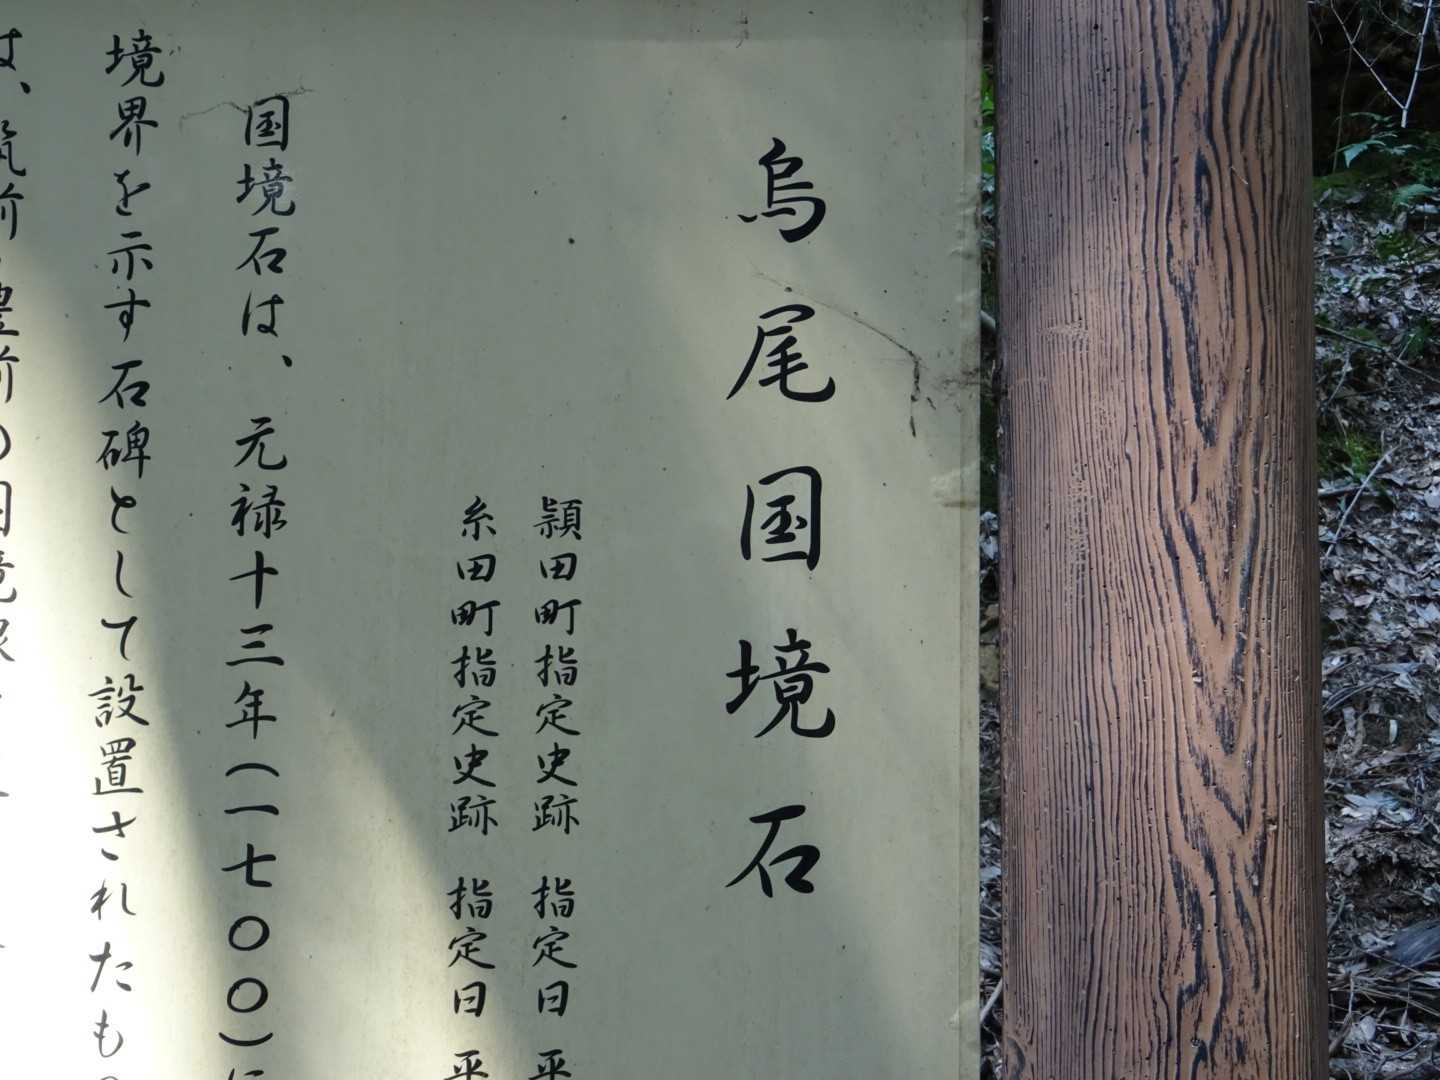 烏尾国境石
頴田町指定史跡 指定日 平
糸田町指定史跡 指定日 平
国境石は、元禄十三年(一七〇〇)に
境界を示す石碑として設置されたもの
は、筑前・豊前の国境